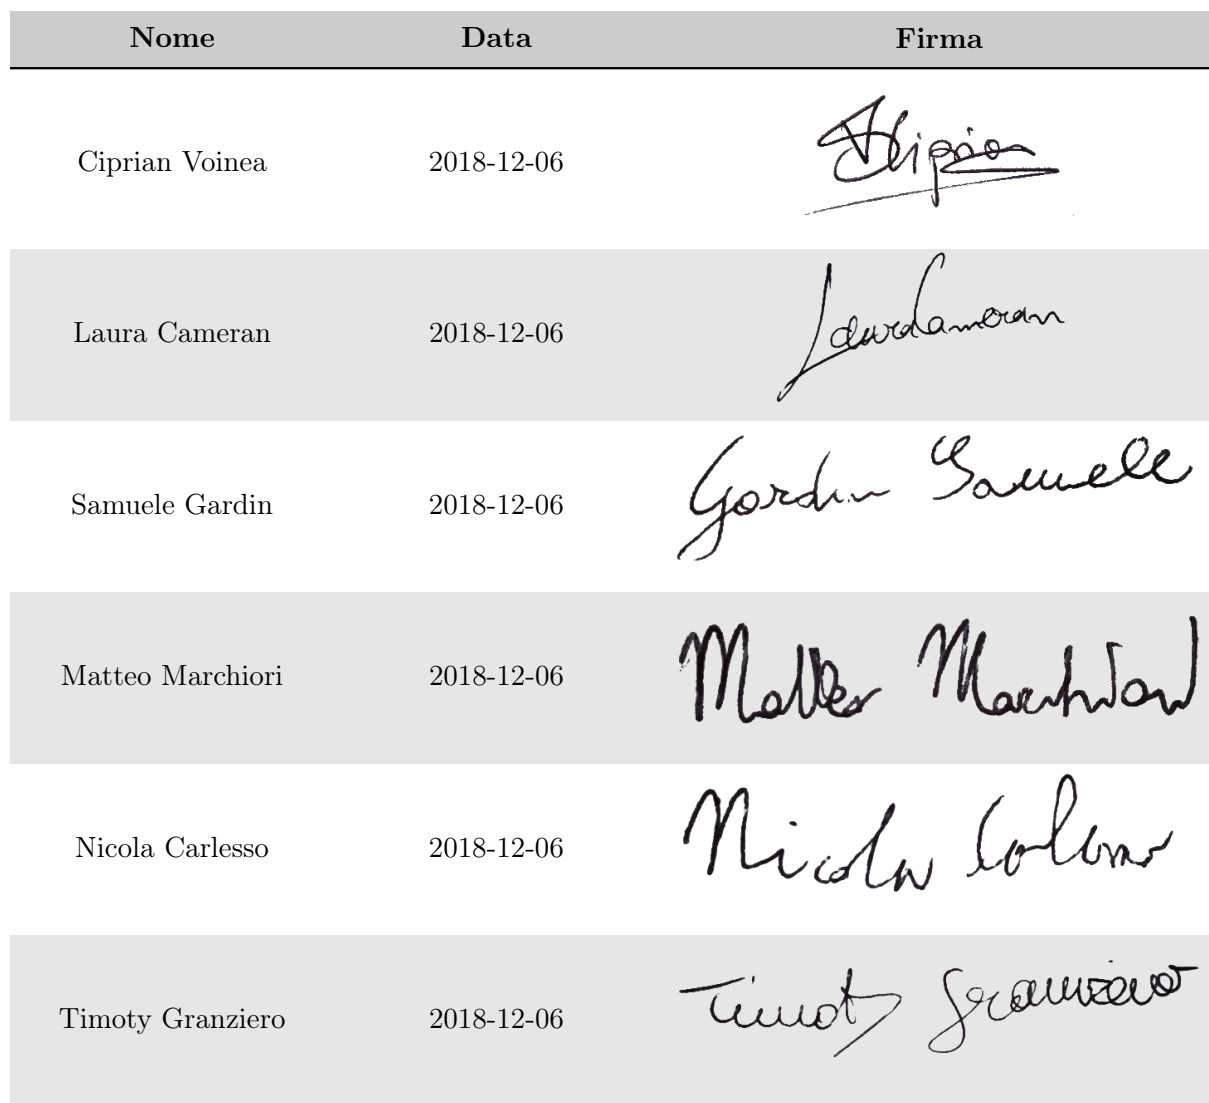 Nome Data Firma
Ciprian Voinea 2018-12-06 Ciprian
Laura Cameran 2018-12-06 Laura Cameran
Samuele Gardin 2018-12-06 Gardin Samuele
Matteo Marchiori 2018-12-06 Matteo Marchiori
Nicola Carlesso 2018-12-06 Nicola
Timoty Granziero 2018-12-06 Timoty Granziero